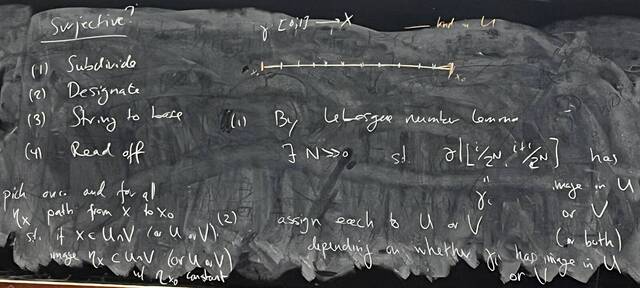 Surjective?
γ: [0,1] → X
U
x₀ x₀
(1) Subdivide
(2) Designate
(3) String to base
(4) Read off
(1) By Lebesgue number lemma
∃ N ≫ 0 st. γ|[i/2^N, i+1/2^N] has
image in U
or V
(or both)
" γᵢ
pick once and for all
η_x path from x to x₀
st. if x ∈ U∩V (or U or V)
image η_x ⊂ U∩V (or U or V)
w/ η_x₀ constant
(2) assign each to U or V
depending on whether γᵢ has image in U
or V